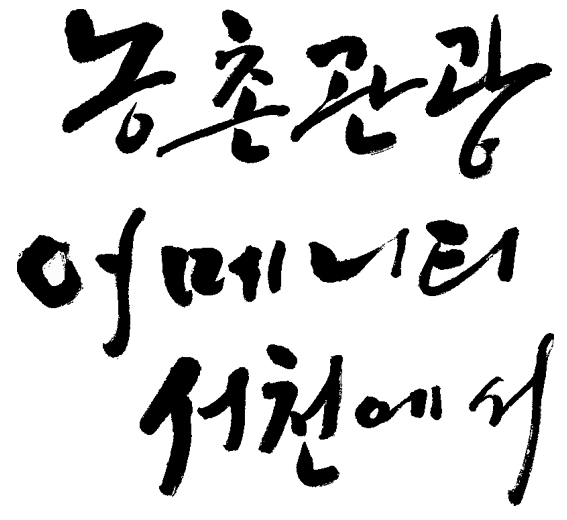 농촌관광
어메니티
서천에서